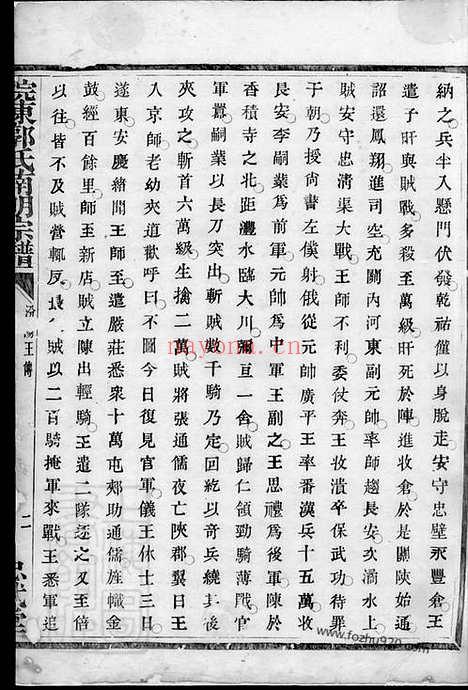 納之兵半入懸門伏發乾祐僅以身脫走安守忠壁永豐倉王
遣子旰與賊戰多殺至萬級旰死於陣進收倉於是關陝始通
詔還鳳翔進司空充關內河東副元帥率師趨長安次潏水上
賊安守忠清渠大戰王師不利委仗奔王收潰卒保武功待罪
于朝乃授尚書左僕射從元帥廣平王率番漢兵十五萬收
長安李嗣業爲前軍元帥為中軍王副之王思禮為後軍陳於
香積寺之北距灃水臨大川彌亘一舍賊歸仁領勁騎薄戰官
軍囂嗣業以長刀突出斬賊數千騎乃定回紇以奇兵繞其後
夾攻之斬首六萬級生擒二萬賊將張通儒夜亡陝郡翼日王
入京師老幼夾道歡呼曰不圖今日復見官軍儀王休士三日
遂東安慶緒聞王師至遣嚴莊悉衆十萬屯郟助通儒旌幟金
鼓經百餘里師至新店賊立陳出輕騎王遣二隊逐之又至倍
以往皆不及賊營輒反 賊以二百騎掩軍來戰王悉軍追
皖東郭氏南明宗譜
汾陽王傳
二
nayona.cn
www.fozhu920.com